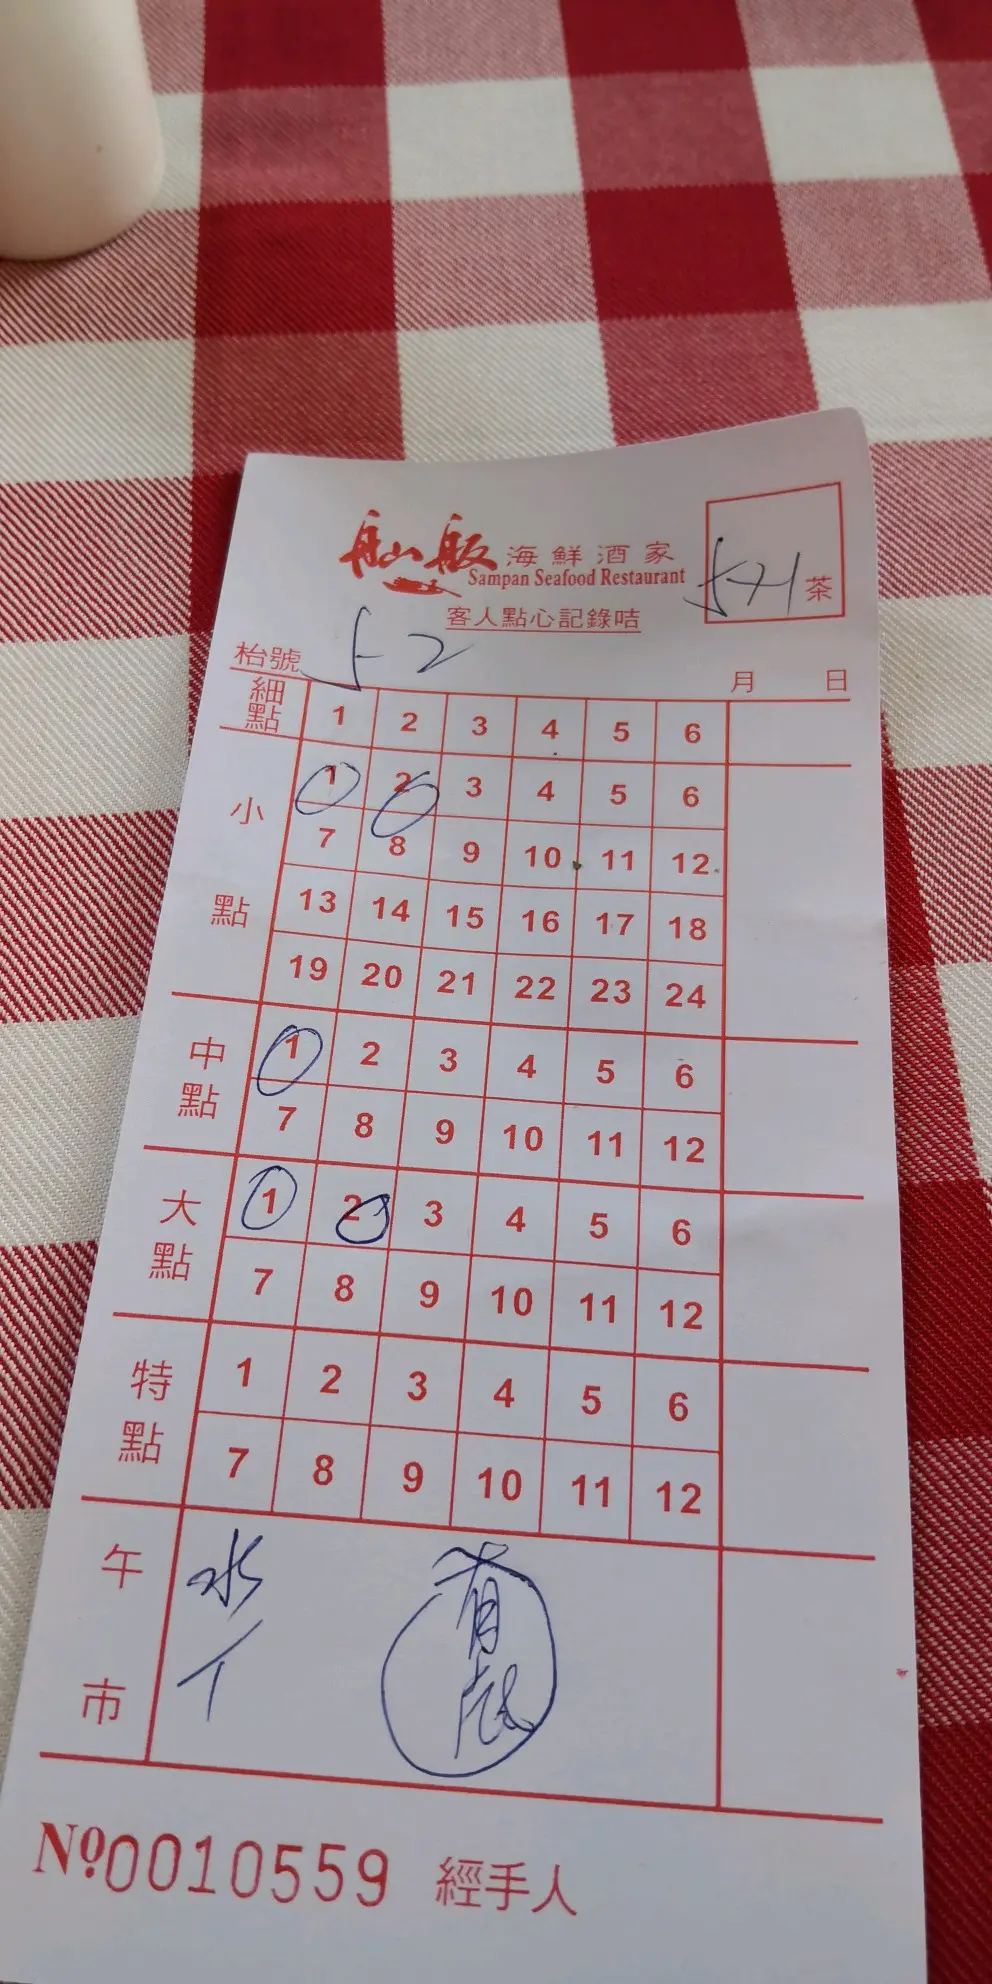 舢舨 海鮮酒家
Sampan Seafood Restaurant
客人點心記錄咭
茶
枱號 52
月 日
細點 1 2 3 4 5 6
小點 1 2 3 4 5 6
7 8 9 10 11 12
13 14 15 16 17 18
19 20 21 22 23 24
中點 1 2 3 4 5 6
7 8 9 10 11 12
大點 1 2 3 4 5 6
7 8 9 10 11 12
特點 1 2 3 4 5 6
7 8 9 10 11 12
午市 水
No 0010559 經手人